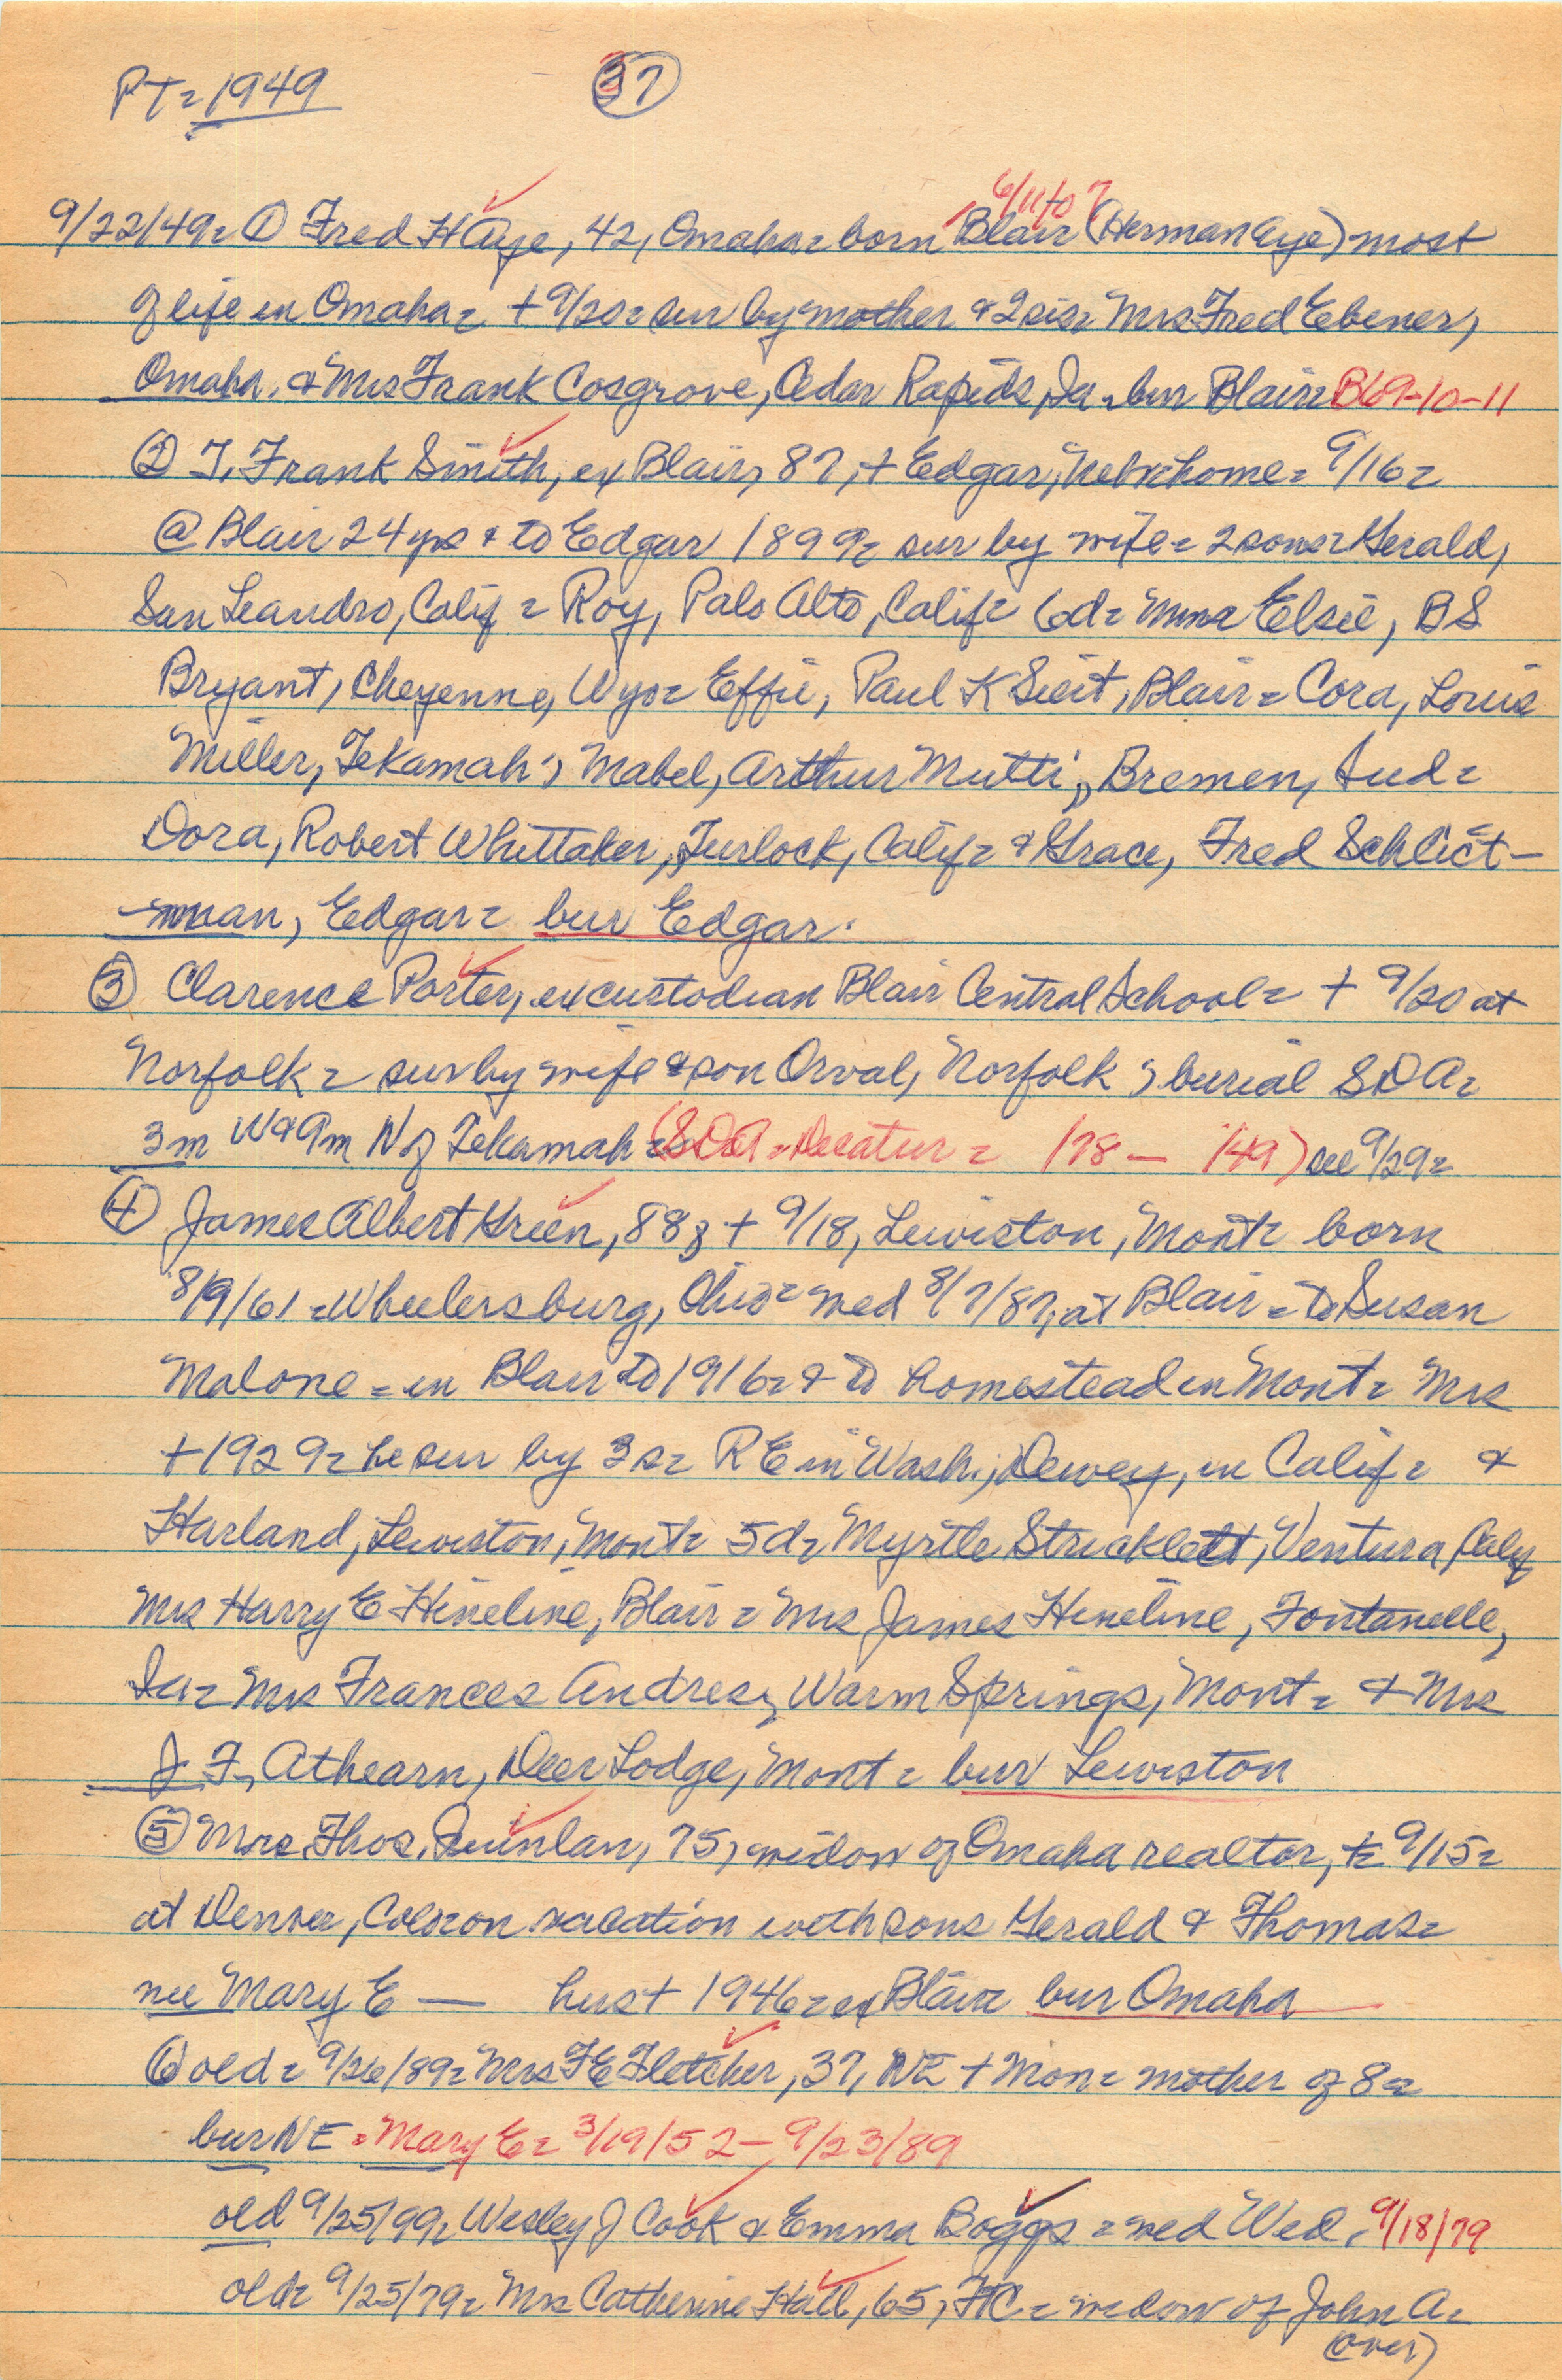 PT = 1949 37
6/11/07
9/22/49 = ① Fred H Aye, 42, Omaha = born Blair (Herman Aye) most
of life in Omaha = + 9/20 = sur by mother & 2 sis = Mrs Fred Ebener,
Omaha, & Mrs Frank Cosgrove, Cedar Rapids, Ia = bur Blair = B69-10-11
② T. Frank Smith, ex Blair, 87, + Edgar, Nebr home = 9/16 =
@ Blair 24 yrs & to Edgar 1899 = sur by wife = 2 sons = Gerald,
San Leandro, Calif = Roy, Palo Alto, Calif = 6d = Mmes Elsie, BS
Bryant, Cheyenne, Wyo = Effie, Paul K Siert, Blair = Cora, Louis
Miller, Tekamah; Mabel, Arthur Mutti, Bremen, Ind =
Dora, Robert Whittaker, Turlock, Calif = & Grace, Fred Schlict-
-man, Edgar = bur Edgar.
③ Clarence Porter, ex custodian Blair Central School = + 9/20 at
Norfolk = sur by wife & son Orval, Norfolk; burial SDA =
3m W & 9m N of Tekamah = (SDA = Decatur = /78 - /49) see 9/29 =
④ James Albert Green, 88; + 9/18, Lewiston, Mont = born
8/9/61 = Wheelersburg, Ohio = wed 8/7/87, at Blair = to Susan
Malone = in Blair to 1916 = & to homestead in Mont = Mrs
+ 1929 = he sur by 3s = RE in Wash.; Dewey, in Calif = &
Harland, Lewiston, Mont = 5d = Myrtle Stricklett, Ventura, Calif
Mrs Harry E Hineline, Blair = Mrs James Hineline, Fontanelle,
Ia = Mrs Frances Andres, Warm Springs, Mont = & Mrs
J. F. Athearn, Deer Lodge, Mont = bur Lewiston
⑤ Mrs. Thos. Quinlan, 75, widow of Omaha realtor, + = 9/15 =
at Denver, Colo = on vacation with sons Gerald & Thomas =
nee Mary E — hus + 1946 = ex Blair = bur Omaha
⑥ old = 9/26/89 = Mrs FE Fletcher, 37, NE + Mon = mother of 8 =
bur NE = Mary E = 3/19/52 - 9/23/89
old 9/25/99 = Wesley J Cook & Emma Boggs = wed Wed, 9/18/79
old = 9/25/79 = Mrs Catherine Hall, 65, FtC = widow of John A =
(over)